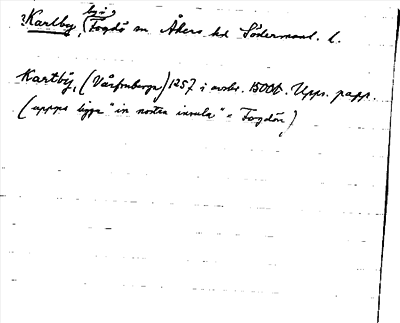 ?Karlby, Fogdö sn Åkers hd Södermanl. l.
Kartby, (Vårfruberga) 1257 i avskr. 1500t. Upps. papp.
(uppges ligga "in nostra insula" = Fogdön)